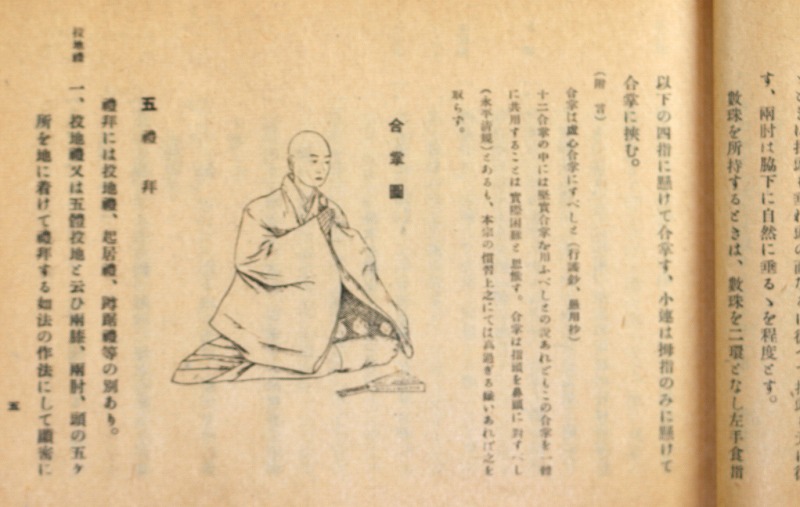 す、兩肘は脇下に自然に垂るゝを程度とす。
數珠を所持するときは、數珠を二環となし左手食指、
以下の四指に懸けて合掌す、小連は拇指のみに懸けて
合掌に挾む。
(附言)
合掌は虛心合掌にすべしと(行法鈔、
十二合掌の中には堅實合掌を用ふべしとの說あれどもこの合掌を一般
に共用することは實際困難と思惟す。合掌は指頭を鼻端に對すべし
(永平淸規)とあるも、本宗の慣習上之にては高過ぎる嫌いあれば之を
取らず。
合掌圖
五 禮拜
禮拜には投地禮、起居禮、蹲踞禮等の別あり。
投地禮
一、投地禮又は五體投地と云ひ兩膝、兩肘、頭の五ヶ
所を地に着けて禮拜する如法の作法にして顯密に
五